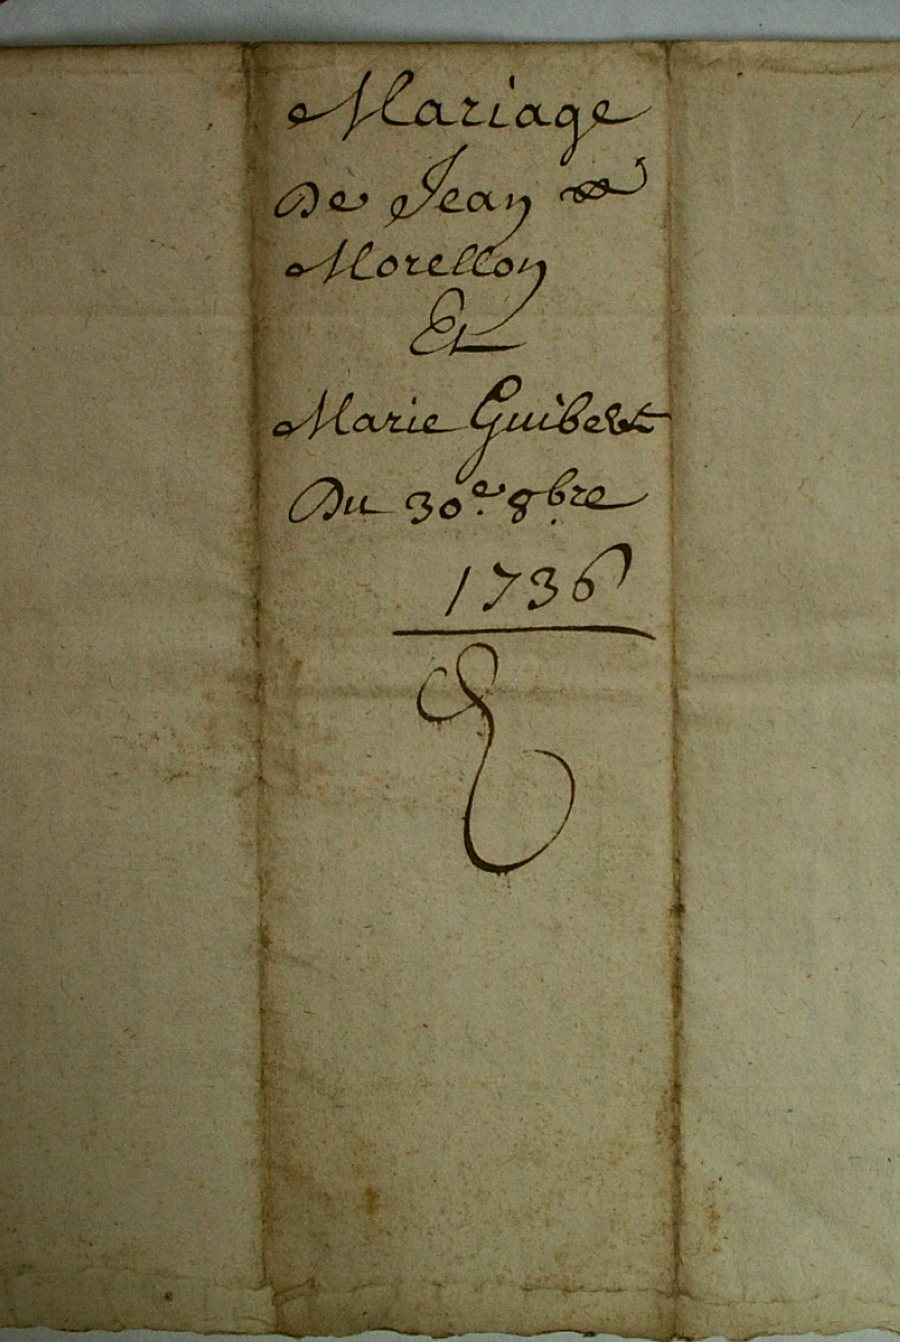 Mariage
De Jean
Morellon
Et
Marie Guibert
Du 30e. 8bre
1736